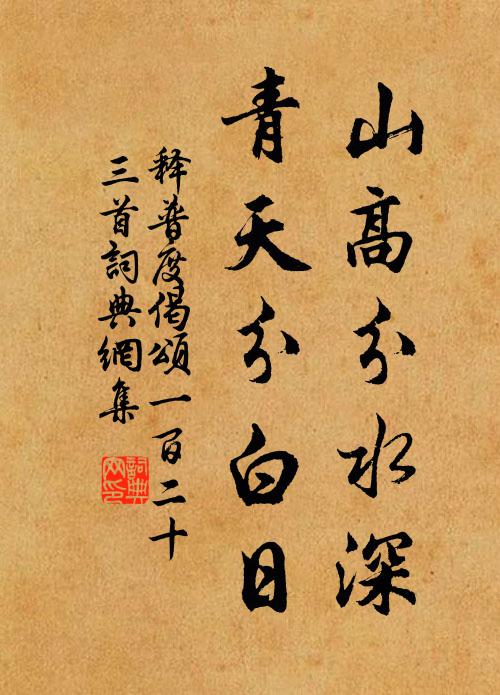 山高分水深
青天分白日
释普度偈頌一百二十
三首詞典網集
詞典
网印